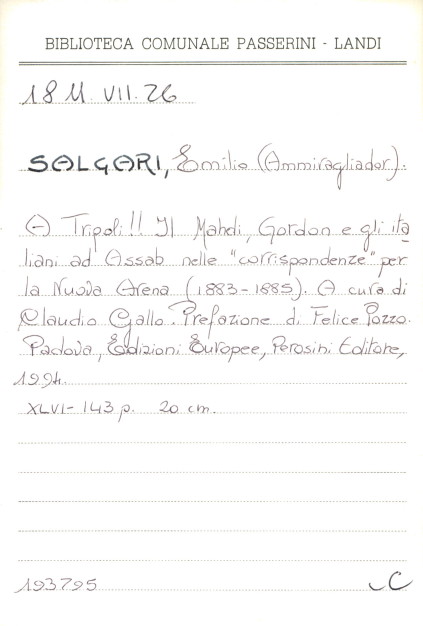 BIBLIOTECA COMUNALE PASSERINI - LANDI
18 M. VII. 26
SALGARI, Emilio (Ammiragliador).
A Tripoli!! Il Mahdi, Gordon e gli ita
liani ad Assab nelle "corrispondenze" per
la Nuova Arena (1883-1885). A cura di
Claudio Gallo. Prefazione di Felice Pozzo.
Padova, Edizioni Europee, Perosini Editore,
1994.
XLVI-143 p. 20 cm.
193795